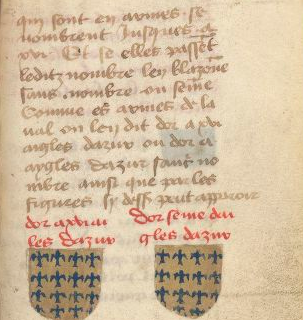 qui sont en armes se
nombrent jusques a
xvi Et se elles passēt
ledit nombre len blazōne
sans nombre ou seme
Comme es armes de la
val on len dit dor a xvi
aigles dazur ou dor a
aygles dazur sans no
mbre ainsi que par les
figures cy dess peut apparoir
dor a xvi ai
gles dazur
dor seme dai
gles dazur